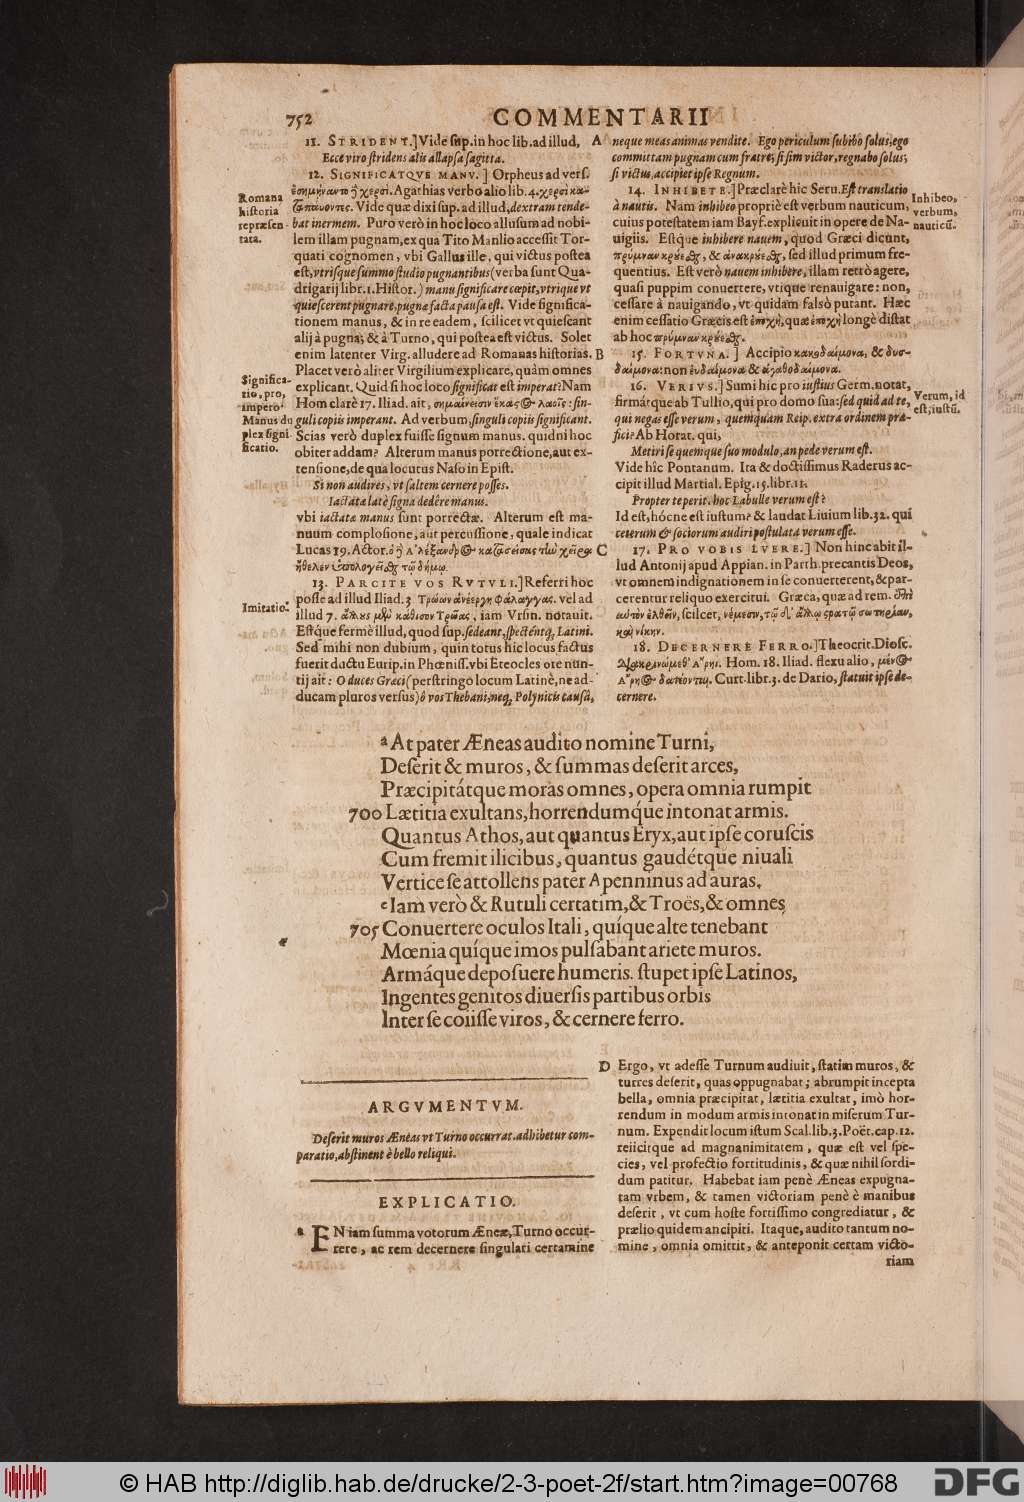 752
COMMENTARII
11. STRIDENT.] Vide sup. in hoc lib. ad illud,
Ecce viro stridens alis allapsa sagitta.
12. SIGNIFICATQVE MANV.] Orpheus ad vers.
Agathias verbo alio lib. 4.
Vide quæ dixi sup. ad illud, dextram tende-
bat inermem. Puto verò in hoc loco allusum ad nobi-
lem illam pugnam, ex qua Tito Manlio accessit Tor-
quati cognomen, vbi Gallus ille, qui victus postea
est, vtrisque summo studio pugnantibus (verba sunt Qua-
drigarij libr. 1. Histor.) manu significare cœpit, vtrique vt
quiescerent pugnare, pugnæ facta pausa est. Vide significa-
tionem manus, & in re eadem, scilicet vt quiescant
alij à pugna; & à Turno, qui postea est victus. Solet
enim latenter Virg. alludere ad Romanas historias.
Placet verò aliter Virgilium explicare, quàm omnes
explicant. Quid si hoc loco significat est imperat? Nam
Hom clarè 17. Iliad. ait, σημαίνεισιν ἕκαςος λαοῖς: sin-
guli copiis imperant. Ad verbum, singuli copiis significant.
Scias verò duplex fuisse signum manus. quidni hoc
obiter addam? Alterum manus porrectione, aut ex-
tensione, de qua locutus Naso in Epist.
Si non audires, vt saltem cernere posses.
Iactatæ latè signa dedêre manus.
vbi iactatæ manus sunt porrectæ. Alterum est ma-
nuum complosione, aut percussione, quale indicat
Lucas 19. Actor. ὁ ἢ Ἀλέξανδρος κατασείσας τὼ χεῖρα
ἤθελεν ἀπολογεῖσθαι τῷ δήμῳ.
13. PARCITE VOS RVTVLI.] Referri hoc
posse ad illud Iliad. 3. Τρώων ἀνέεργε φάλαγγας. vel ad
illud 7. ἄλλους μὲν κάθισον Τρῶας, iam Vrsin. notauit.
Estq́ue fermè illud, quod sup. sedeant, spectentq́, Latini.
Sed mihi non dubium, quin totus hic locus factus
fuerit ductu Eurip. in Phœniss. vbi Eteocles ore nun-
tij ait: O duces Græci (perstringo locum Latinè, ne ad-
ducam pluros versus) ô vos Thebani; neq́, Polynicis causâ,
Romana
historia
repræsen-
tata.
Significa-
tio, pro,
impero.
Manus du
plex signi
ficatio.
Imitatio.
A
B
C
neque meas animas vendite. Ego periculum subibo solus; ego
committam pugnam cum fratre; si sim victor, regnabo solus;
si victus, accipiet ipse Regnum.
14. INHIBETE.] Præclarè hîc Seru. Est translatio
à nautis. Nam inhibeo propriè est verbum nauticum,
cuius potestatem iam Bayf. explicuit in opere de Na-
uigiis. Estq́ue inhibere nauem, quod Græci dicunt,
πρύμναν κρούεσθαι, & ἀνακρούεσθαι, sed illud primum fre-
quentius. Est verò nauem inhibere, illam retrò agere,
quasi puppim conuertere, vtique renauigare: non,
cessare à nauigando, vt quidam falsò putant. Hæc
enim cessatio Græcis est ἐποχὴ, quæ ἐποχὴ longè distat
ab hoc πρύμναν κρούεσθαι.
15. FORTVNA.] Accipio κακοδαίμονα, & δυσ-
δαίμονα: non εὐδαίμονα & ἀγαθοδαίμονα.
16. VERIVS.] Sumi hîc pro iustius Germ. notat,
firmátque ab Tullio, qui pro domo sua: sed quid ad te,
qui negas esse verum, quemquam Reip. extra ordinem præ-
fici? Ab Horat. qui,
Metiri se quemque suo modulo, an pede verum est.
Vide hîc Pontanum. Ita & doctissimus Raderus ac-
cipit illud Martial. Epig. 15. libr. 11.
Propter te perit. hoc Labulle verum est?
Id est, hócne est iustum? & laudat Liuium lib. 32. qui
ceterum & sociorum audiri postulata verum esse.
17. PRO VOBIS LVERE.] Non hinc abit il-
lud Antonij apud Appian. in Parth. precantis Deos,
vt omnem indignationem in se conuerterent, & par-
cerentur reliquo exercitui. Græca, quæ ad rem.
ἑωυτὸν ἐλθεῖν, scilcet, νέμεσιν, τῷ δ' ἄλλῳ ςρατῷ σωτηρίαν,
καὶ νίκην.
18. DECERNERE FERRO.] Theocrit. Diosc.
Διακρινώμεθ' Ἄρηι. Hom. 18. Iliad. flexu alio, μένος
Ἄρηος δατέονται. Curt. libr. 3. de Dario, statuit ipse de-
cernere.
Inhibeo,
verbum,
nauticū.
Verum, id
est, iustū.
a At pater Æneas audito nomine Turni,
Deserit & muros, & summas deserit arces,
Præcipitátque moras omnes, opera omnia rumpit
700 Lætitia exultans, horrendumq́ue intonat armis.
Quantus Athos, aut quantus Eryx, aut ipse coruscis
Cum fremit ilicibus, quantus gaudétque niuali
Vertice se attollens pater Apenninus ad auras.
c Iam verò & Rutuli certatim, & Troës, & omnes
705 Conuertere oculos Itali, quíque alte tenebant
Mœnia quíque imos pulsabant ariete muros.
Armáque deposuere humeris. stupet ipse Latinos,
Ingentes genitos diuersis partibus orbis
Inter se coiisse viros, & cernere ferro.
ARGVMENTVM.
Deserit muros Æneas vt Turno occurrat. adhibetur com-
paratio, abstinent è bello reliqui.
EXPLICATIO.
a EN iam summa votorum Æneæ, Turno occur-
rere, ac rem decernere singulari certamine
D
Ergo, vt adesse Turnum audiuit, statim muros, &
turres deserit, quas oppugnabat; abrumpit incepta
bella, omnia præcipitat, lætitia exultat, imò hor-
rendum in modum armis intonat in miserum Tur-
num. Expendit locum istum Scal. lib. 3. Poët. cap. 12.
reiicitque ad magnanimitatem, quæ est vel spe-
cies, vel profectio fortitudinis, & quæ nihil sordi-
dum patitur. Habebat iam penè Æneas expugna-
tam vrbem, & tamen victoriam penè è manibus
deserit, vt cum hoste fortissimo congrediatur, &
prælio quidem ancipiti. Itaque, audito tantum no-
mine, omnia omittit, & anteponit certam victo-
riam
© HAB http://diglib.hab.de/drucke/2-3-poet-2f/start.htm?image=00768
DFG